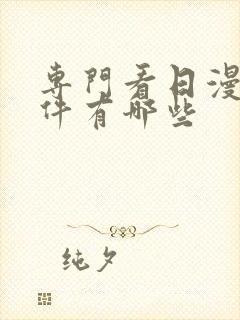 專門看日漫
件有哪些
纯夕